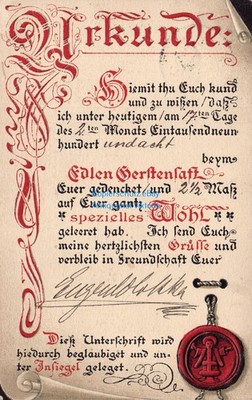 Urkunde:
Hiemit thu Euch kund
und zu wißen / daß
ich unter heutigem / am 17ten Tage
des 2ten Monats Eintausendneun-
hundert undacht
beym
Edlen Gerstensaft
Euer gedencket / und 2½ Maß
auf Euer gantz
spezielles Wohl
geleeret hab. Ich send Euch
meine hertzlichsten Grüsse und
verbleib in Freundschaft Euer
Eugen
Dieß Unterschrift wird
hiedurch beglaubiget und un-
ter Insiegel geleget.